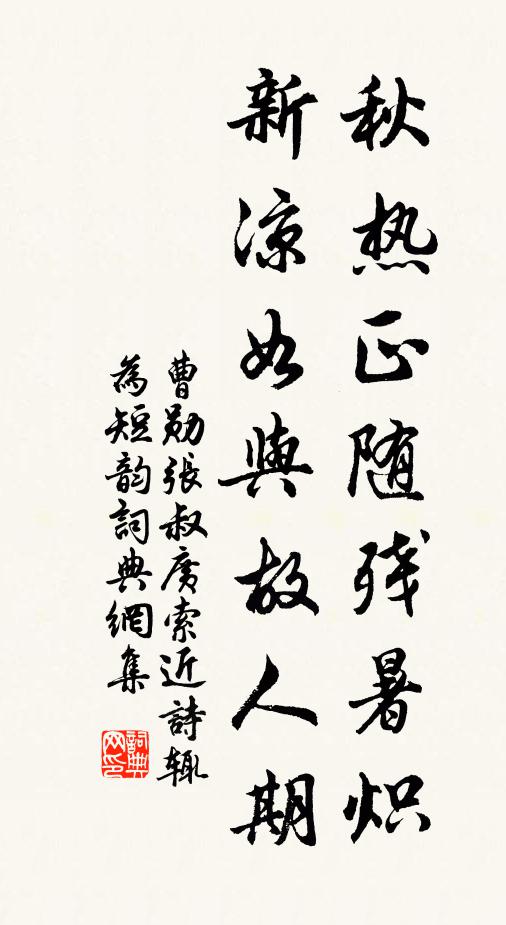 秋热正随残暑炽
新凉如与故人期
曹勋张叔广索近詩辄
為短韵詞典網集
詞典
网印